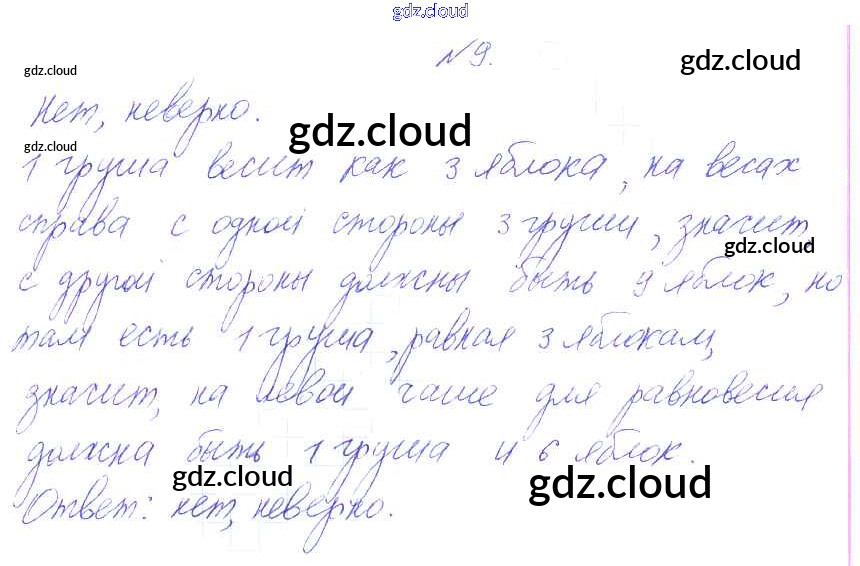 gdz.cloud
№9.
gdz.cloud
gdz.cloud
Нет, неверно.
gdz.cloud
gdz.cloud
1 груша весит как 3 яблока, на весах
справа с одной стороны 3 груши, значит,
gdz.cloud
с другой стороны должны быть 9 яблок, но
там есть 1 груша, равная 3 яблокам,
значит, на левой чаше для равновесия
должна быть 1 груша и 6 яблок.
gdz.cloud
gdz.cloud
Ответ: нет, неверно.